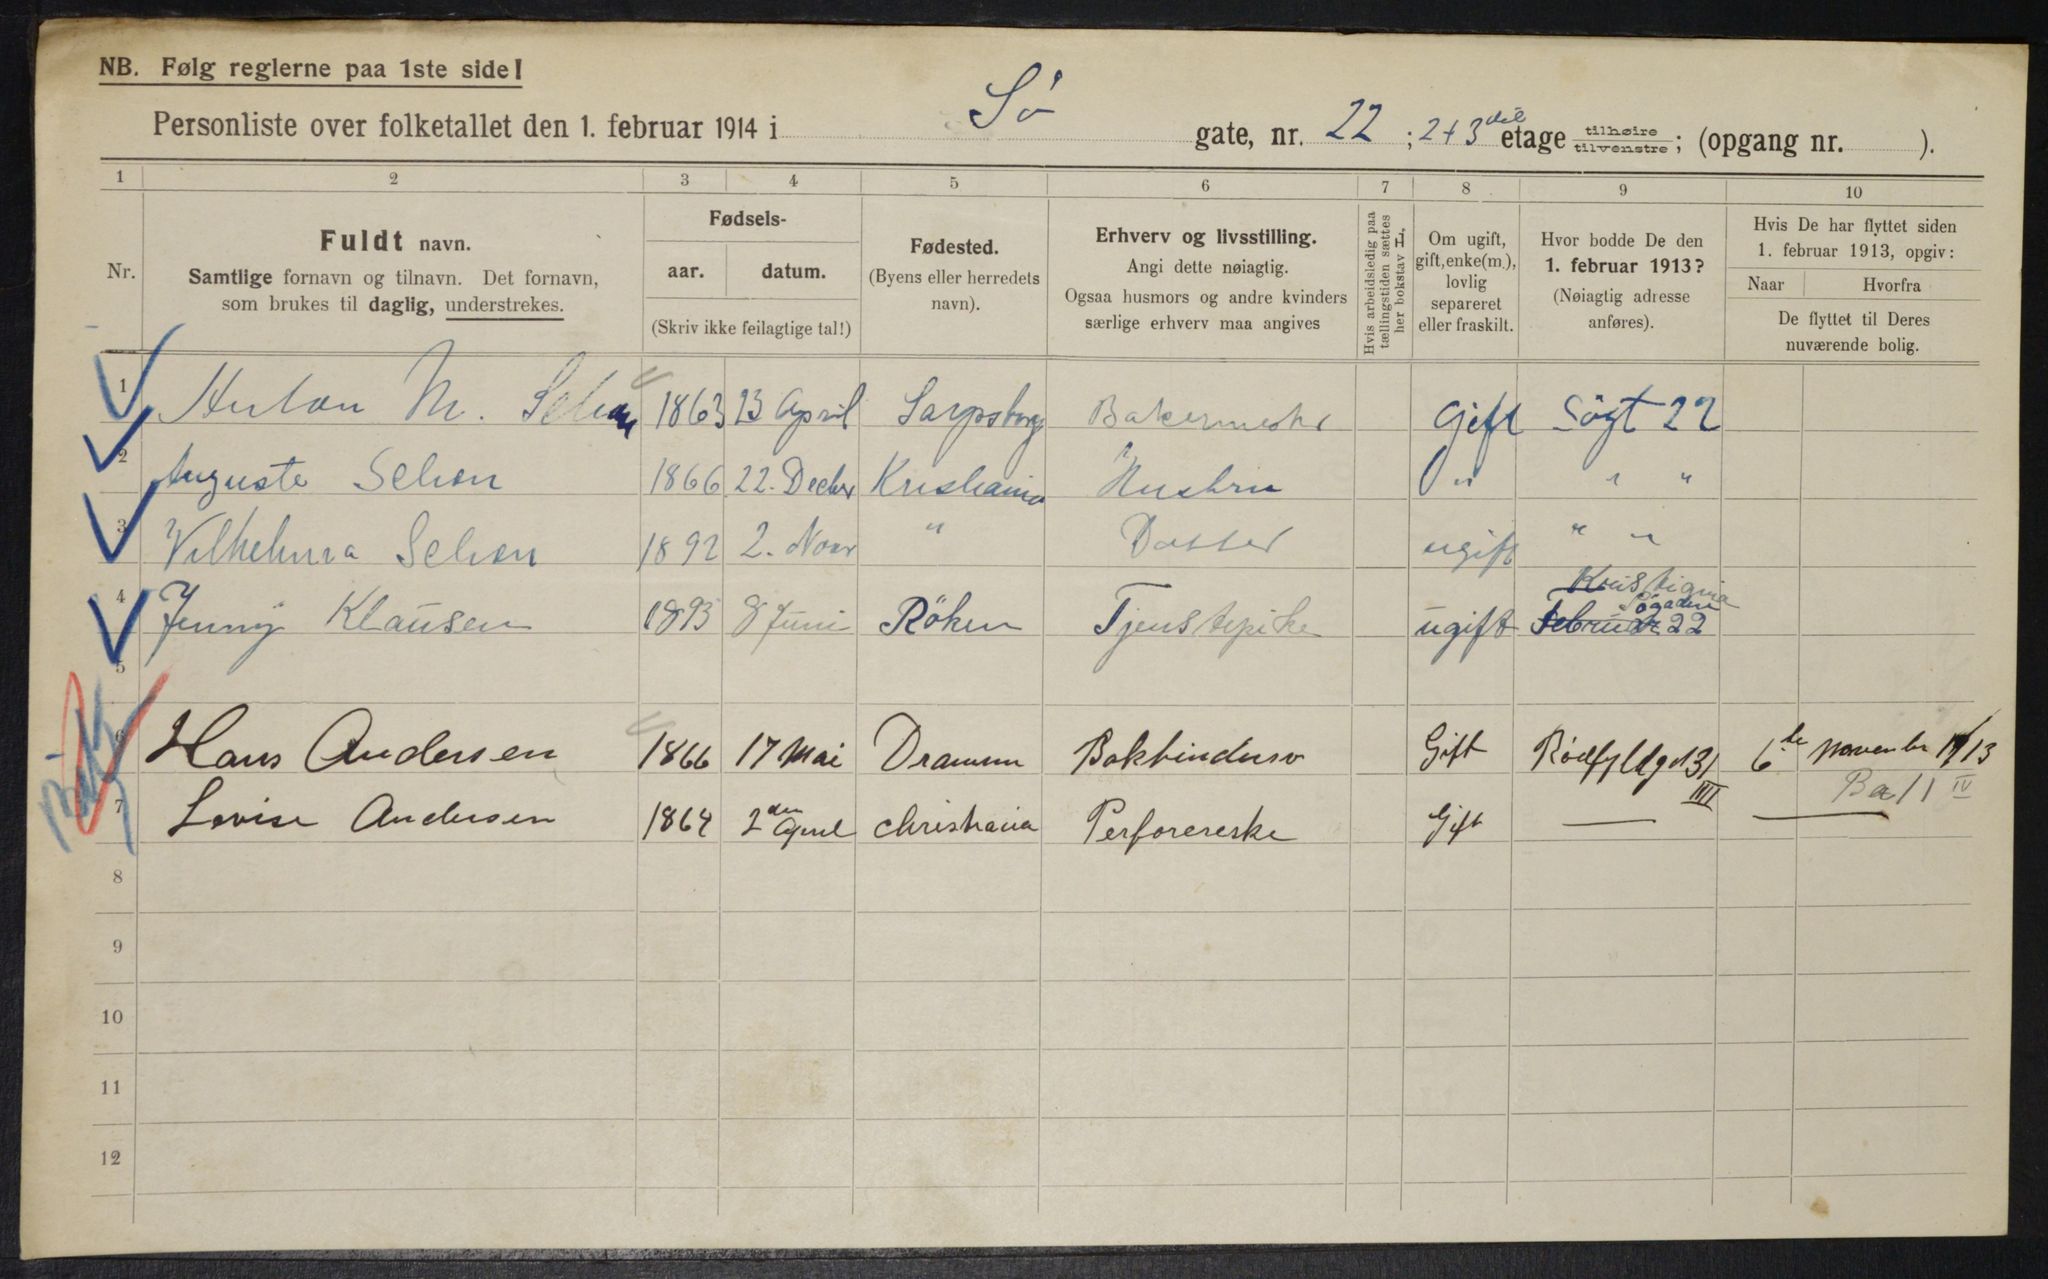 NB. Følg reglerne paa 1ste side!
Personliste over folketallet den 1. februar 1914 i Sö gate, nr. 22 ; 2+3 etage tilhøire tilvenstre; (opgang nr. ).
1 2 3 4 5 6 7 8 9 10
Nr.
Fuldt navn.
Samtlige fornavn og tilnavn. Det fornavn,
som brukes til daglig, understrekes.
Fødsels-
aar. datum.
(Skriv ikke feilagtige tal!)
Fødested.
(Byens eller herredets
navn).
Erhverv og livsstilling.
Angi dette nøiagtig.
Ogsaa husmors og andre kvinders
særlige erhverv maa angives
Hvis arbeidsledig paa
tællingstiden sættes
her bokstav H.
Om ugift,
gift, enke(m.),
lovlig
separeret
eller fraskilt.
Hvor bodde De den
1. februar 1913?
(Nøiagtig adresse
anføres).
Hvis De har flyttet siden
1. februar 1913, opgiv:
Naar Hvorfra
De flyttet til Deres
nuværende bolig.
1 Anton M. 1863 23 April Sarpsborg Bakermester Gift Sögt 22
2 Auguste Schon 1866 22. Decbr Kristiania Hustru " " "
3 Vilhelmina Schon 1892 2. Novr " Datter ugift " "
4 Jenny Klausen 1893 8 Juni Röken Tjenstepike ugift Kristiania Sögaden Februar 22
5
6 Hans Andersen 1866 17 Mai Drammen Bokbindersv Gift 31 III 6te November 1913
Ba 11 IV
7 Lovise Andersen 1864 2den April christiania Perforereske Gift — —
8
9
10
11
12